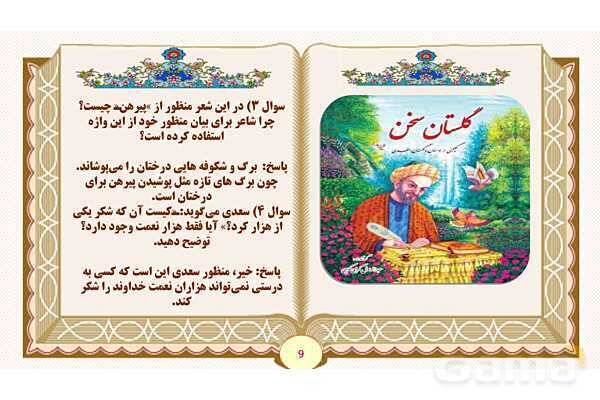 سوال ۳) در این شعر منظور از »پیرهن« چیست؟
چرا شاعر برای بیان منظور خود از این واژه
استفاده کرده است؟
پاسخ: برگ و شکوفه هایی درختان را می‌پوشاند.
چون برگ های تازه مثل پوشیدن پیرهن برای
درختان است.
سوال ۴) سعدی می‌گوید:»کیست آن که شکر یکی
از هزار کرد؟» آیا فقط هزار نعمت وجود دارد؟
توضیح دهید.
پاسخ: خیر، منظور سعدی این است که کسی به
درستی نمی‌تواند هزاران نعمت خداوند را شکر
کند.
گلستان سخن
9
Gama